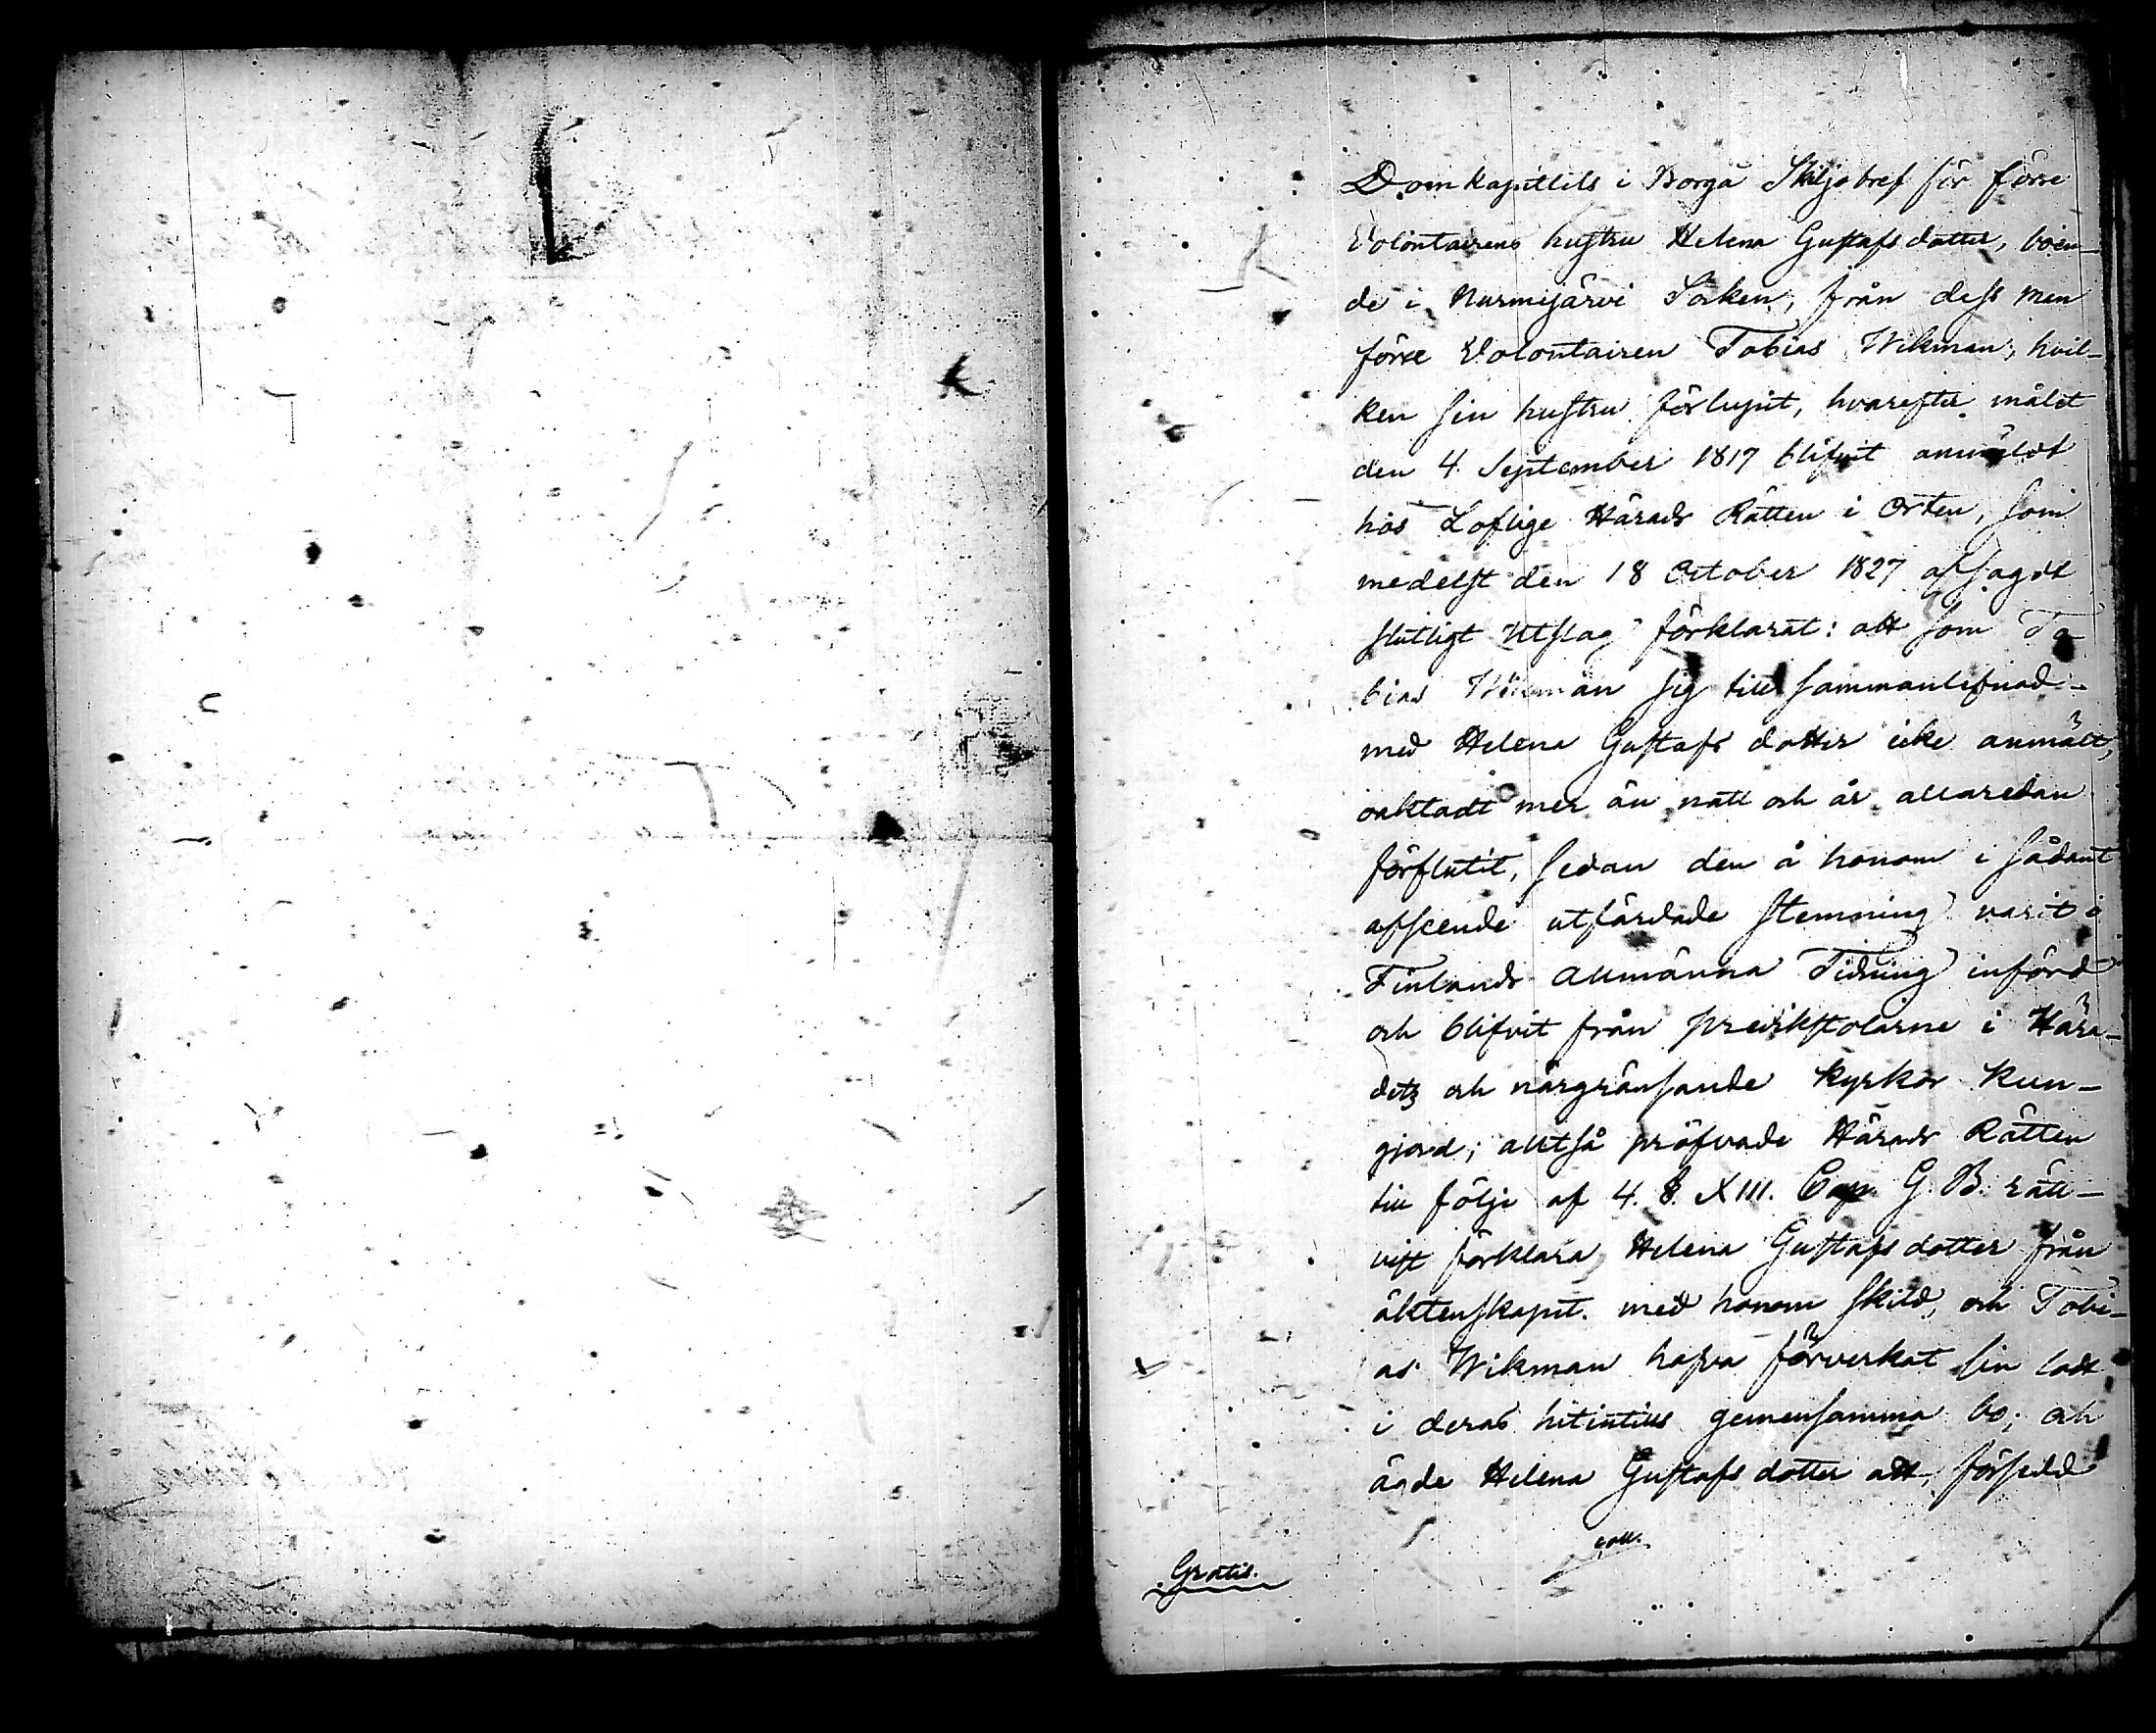 Domkapitlets i Borgå Skiljobref för förre
Volontairens hustru Helena Gustafsdotter, boen-
de i Nurmijärvi Socken, från dess man
förre Volontairen Tobias Wikman, hvil-
ken sin hustru förlupit, hvarefter målet
den 4. September 1817 blifvit anmäldt
hos Loflige Härads Rätten i Orten, som
medelst den 18 October 1827 afsagdt
slutligt Utslag förklarat: att som To-
bias Wikman sig till sammanlefnad
med Helena Gustafs dotter icke anmält,
oaktadt mer än natt och år allaredan
förflutit, sedan den å honom i sådant
afseende utfärdade stemning varit i
Finlands Allmänna Tidning införd
och blifvit från predikstolarne i Hära-
detz och närgränsande kyrkor kun-
gjord; alltså pröfvade Härads Rätten
till följe af 4. §. XIII. Cap. G. B. rätt-
vist förklara Helena Gustafsdotter från
äktenskapet med honom skild, och Tobi-
as Wikman hafva förverkat sin lott
i deras hitintills gemensamma bo; och
ägde Helena Gustafsdotter att, försedd
coll.
Gratis.